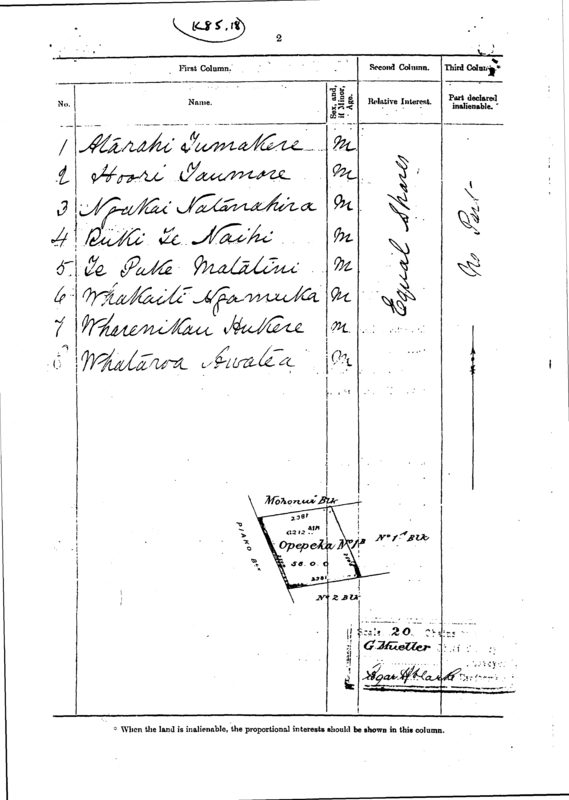 K85.18
2
First Column. Second Column. Third Column.
No. Name. Sex, and, if Minor, Age. Relative Interest. Part declared inalienable. *
1 Atārahi Tumakere M
2 Hoori Taumore M
3 Ngakai Natanahira M
4 Ruki Te Naihi M
5 Te Puke Matatini M
6 Whakaiti Ngamuka M
7 Wharenikau Hukere M
8 Whatāroa Awatea M
Equal Shares
Mohonui Blk
2381
PIAKO Blk
Opepeka No 1B
No 1A Blk
56.0.0
2381
No 2 Blk
Scale 20 Chains
G Mueller
* When the land is inalienable, the proportional interests should be shown in this column.